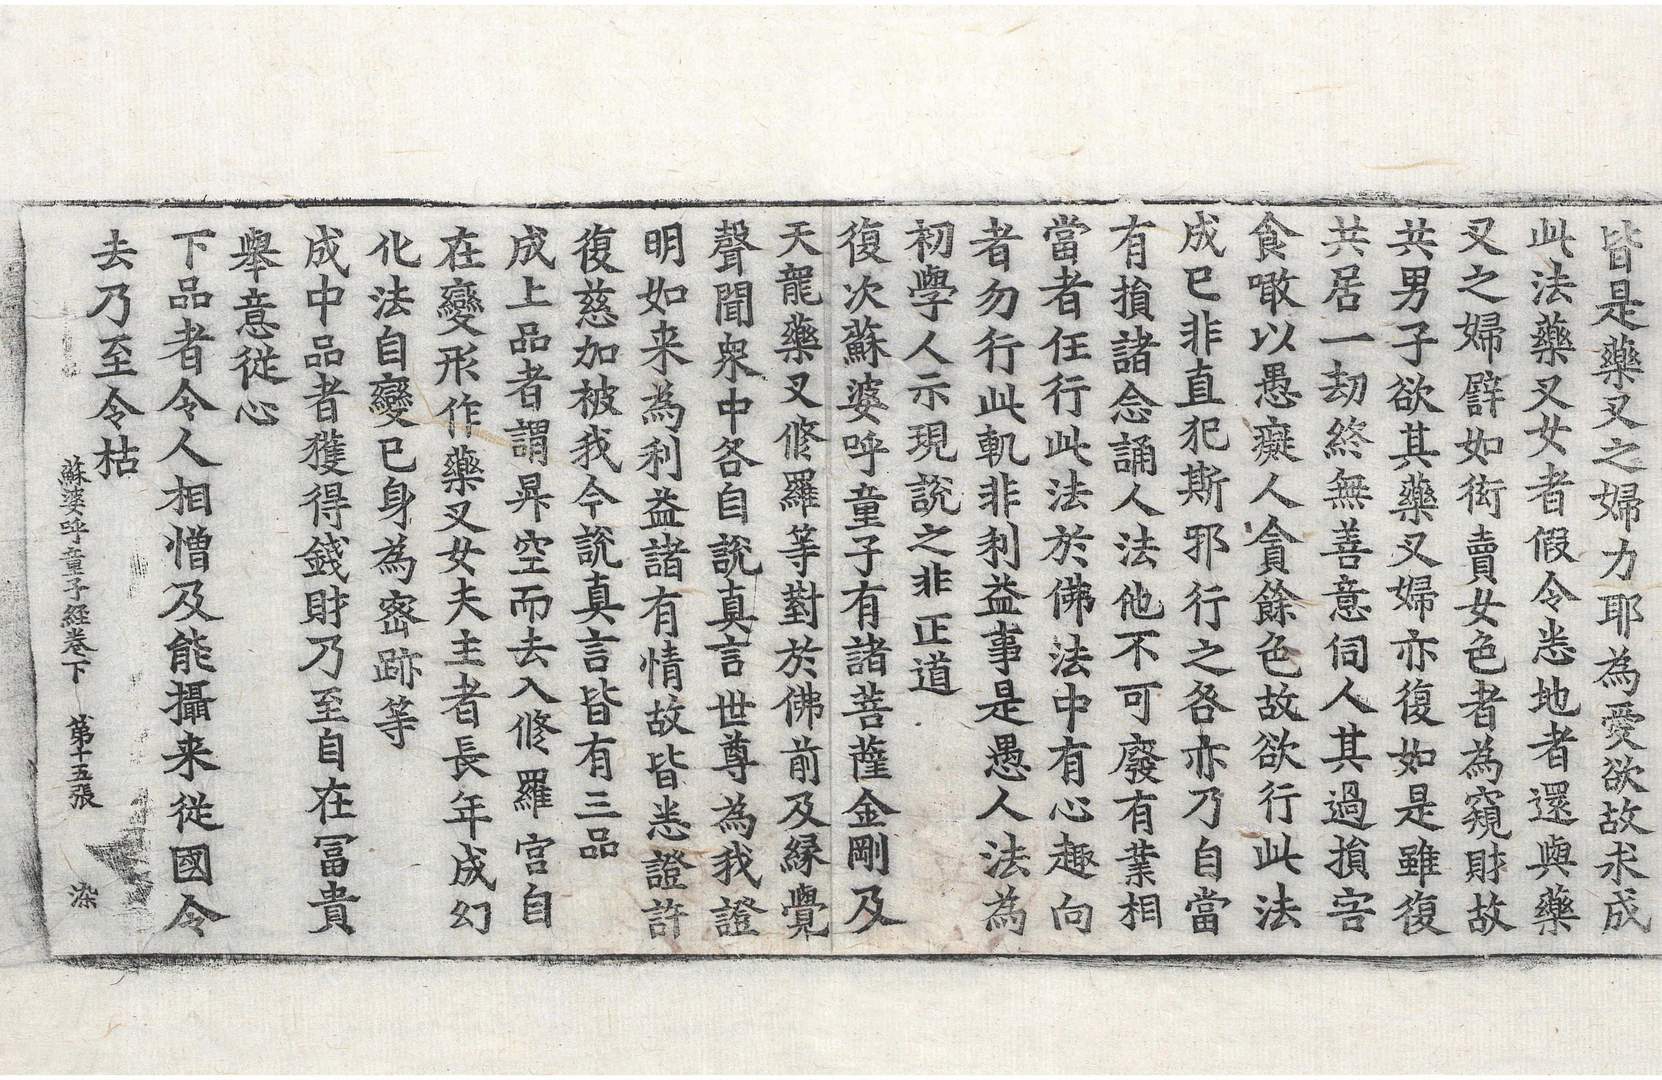 皆是藥叉之婦力耶為愛欲故求成
此法藥叉女者假令悉地者還與藥
叉之婦譬如衒賣女色者為窺財故
共男子欲其藥叉婦亦復如是雖復
共居一劫終無善意伺人其過損害
食噉以愚癡人貪餘色故欲行此法
成已非直犯斯邪行之咎亦乃自當
有損諸念誦人法他不可廢有業相
當者任行此法於佛法中有心趣向
者勿行此軌非利益事是愚人法為
初學人示現說之非正道
復次蘇婆呼童子有諸菩薩金剛及
天龍藥叉修羅等對於佛前及緣覺
聲聞眾中各自說真言世尊為我證
明如来為利益諸有情故皆悉證許
復慈加被我今說真言皆有三品
成上品者謂昇空而去入修羅宮自
在變形作藥叉女夫主者長年成幻
化法自變已身為密跡等
成中品者獲得錢財乃至自在冨貴
舉意從心
下品者令人相憎及能攝来從國令
去乃至令枯
蘇婆呼童子經卷下 第十五張 染